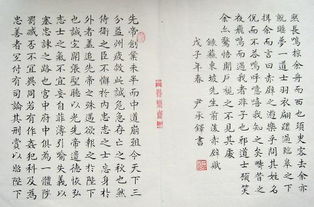 然長鳴掠余舟而西也須臾客去余亦
就睡夢一道士羽衣翩躚過臨皋之下
揖余而言曰赤壁之遊樂乎問其姓名
俛而不答嗚呼噫嘻我知之矣疇昔之
夜飛鳴而過我者非子也邪道士顧笑
余亦驚悟開戶視之不見其處
錄蘇東坡先生前後赤壁賦
戊子年春 尹承鐸書
先帝創業未半而中道崩殂今天下三
分益州疲敝此誠危急存亡之秋也然
侍衛之臣不懈於內忠志之士忘身於
外者蓋追先帝之殊遇欲報之於陛下
也誠宜開張聖聽以光先帝遺德恢弘
志士之氣不宜妄自菲薄引喻失義以
塞忠諫之路也宮中府中俱為一體陟
罰臧否不宜異同若有作姦犯科及為
忠善者宜付有司論其刑賞以昭陛下